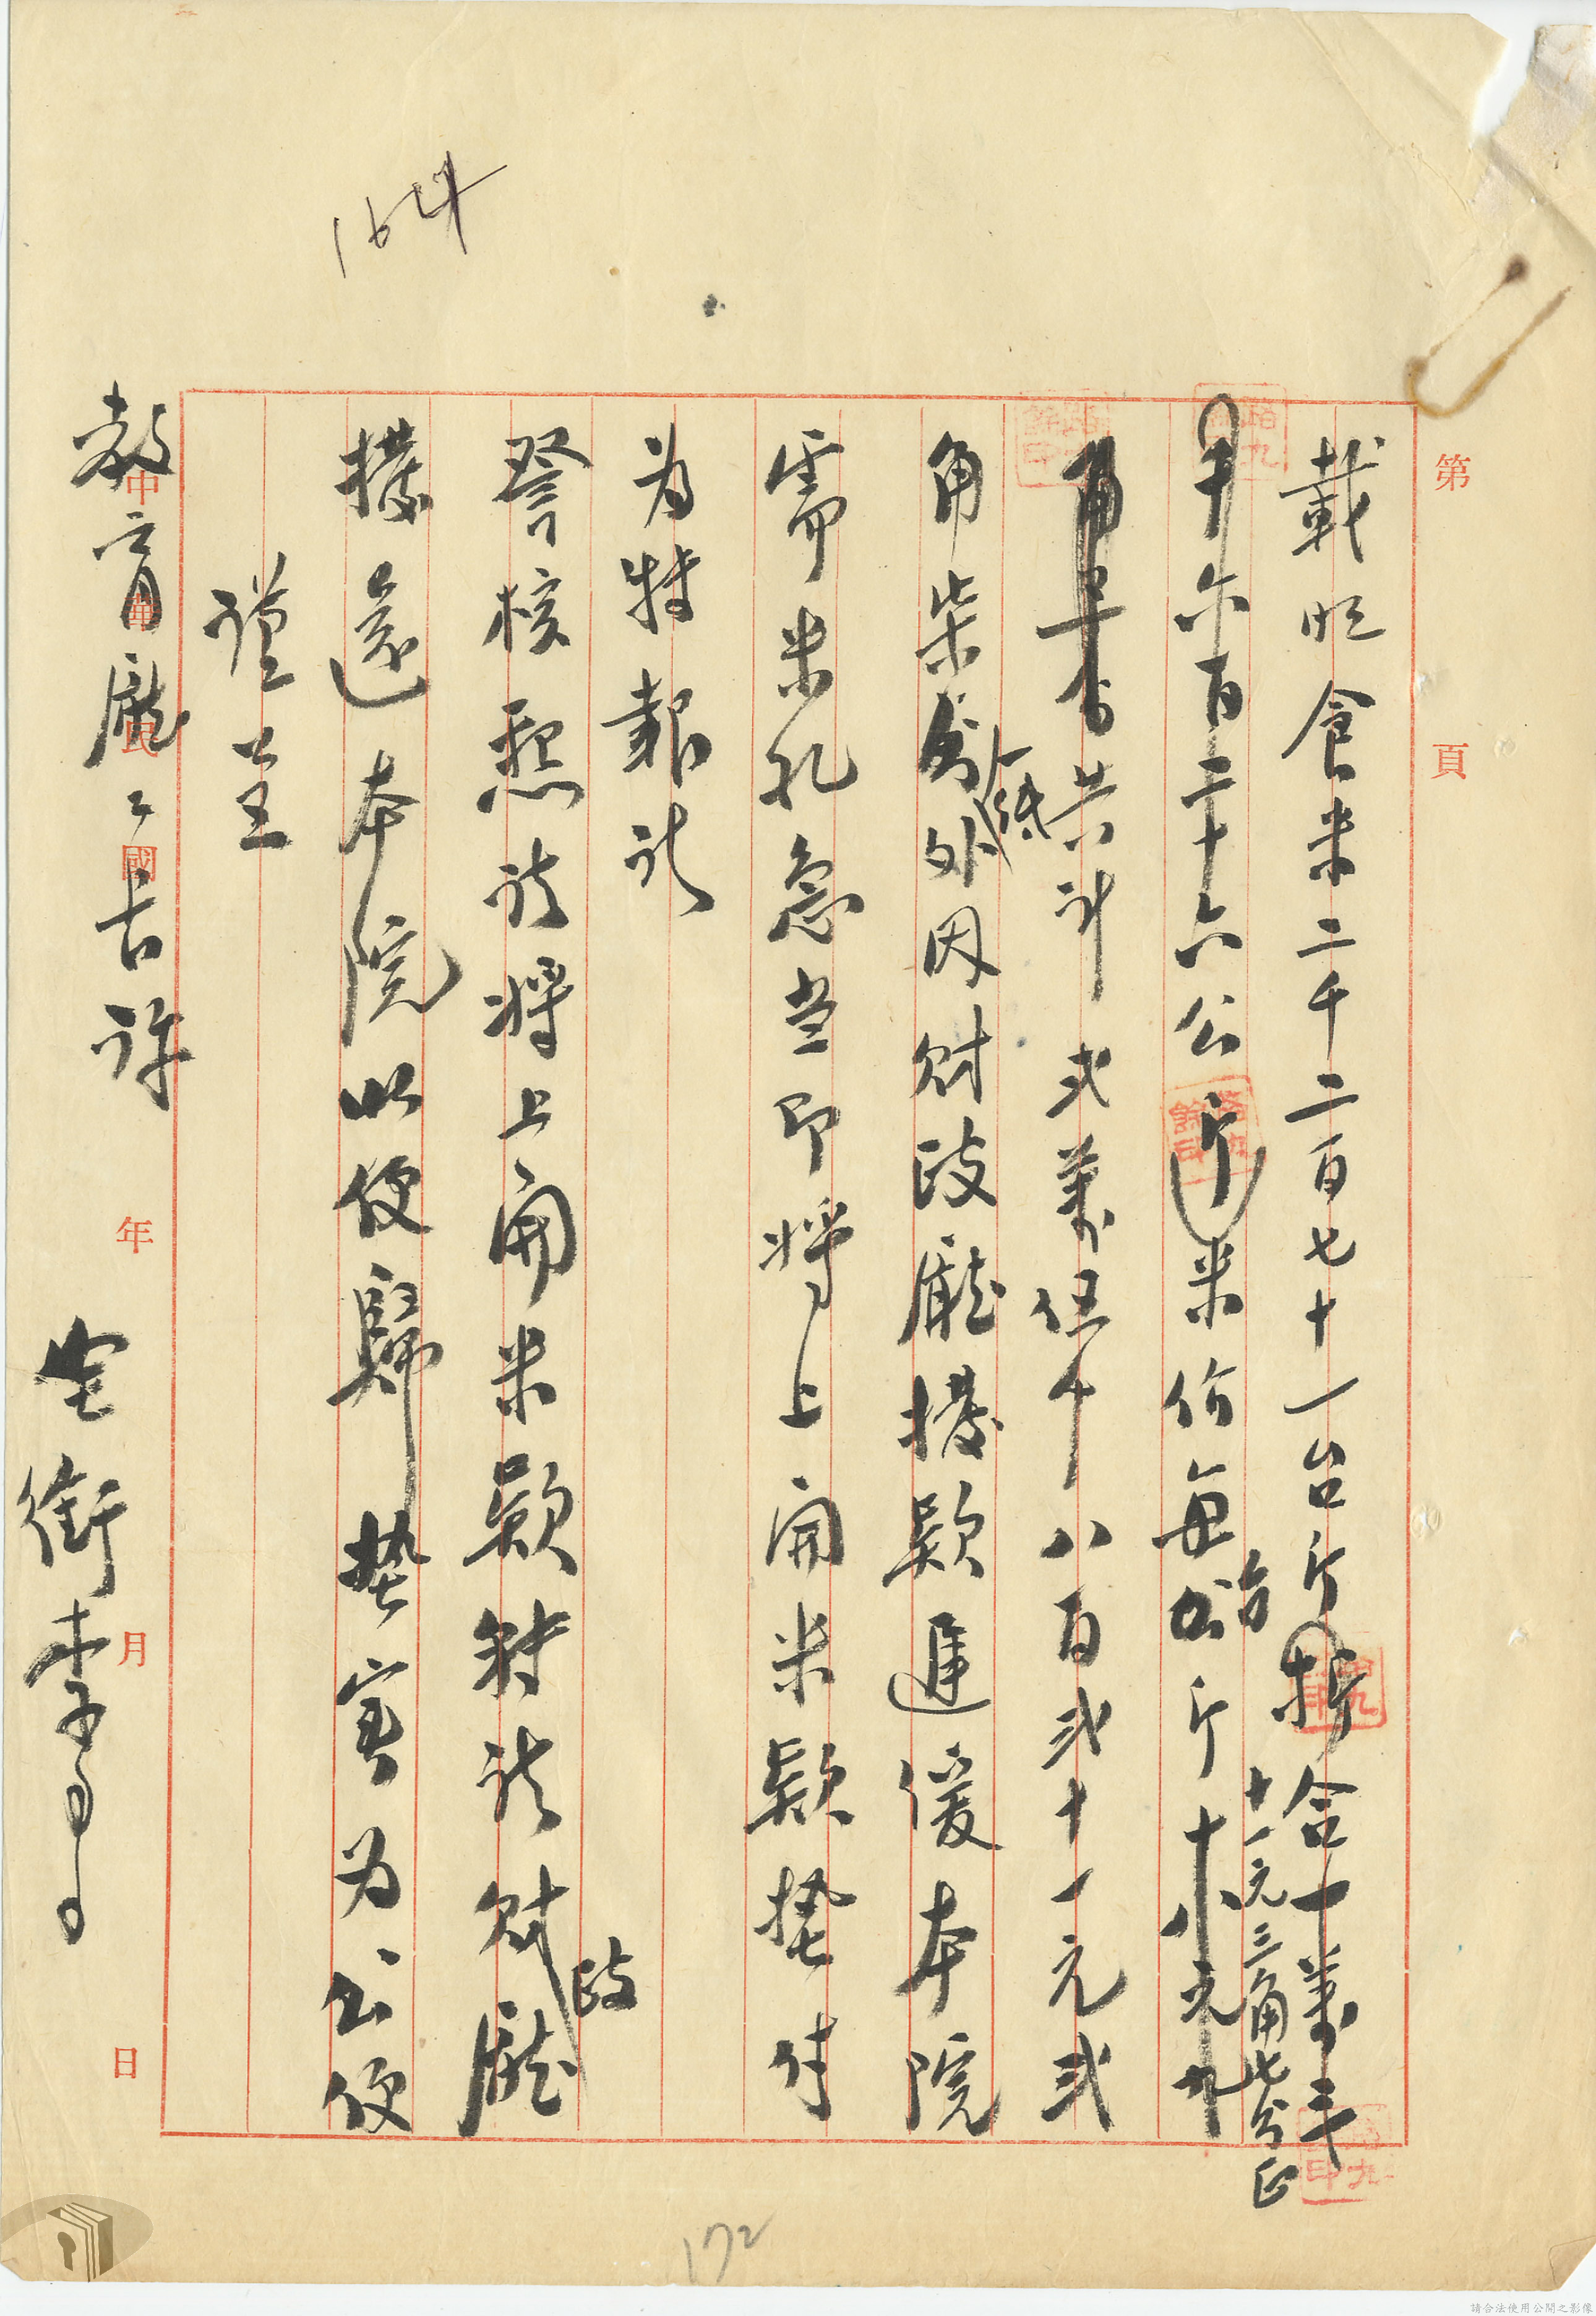 第 頁
載明食米二千二百七十一台斤折合一萬三
千六百二十六公斤米價每台斤十一元三角七分正
共計弍萬伍千八百弍十一元弍
角柒分除外因財政廳撥款遲緩本院
需米孔急當即將上開米款墊付
為特報請
詧核懇請將上開米款轉請財政廳
撥還本院以便歸墊實為公便
謹呈
教育廳廳長許
全銜李○○
中華民國 年 月 日
164
172
請合法使用公開之影像